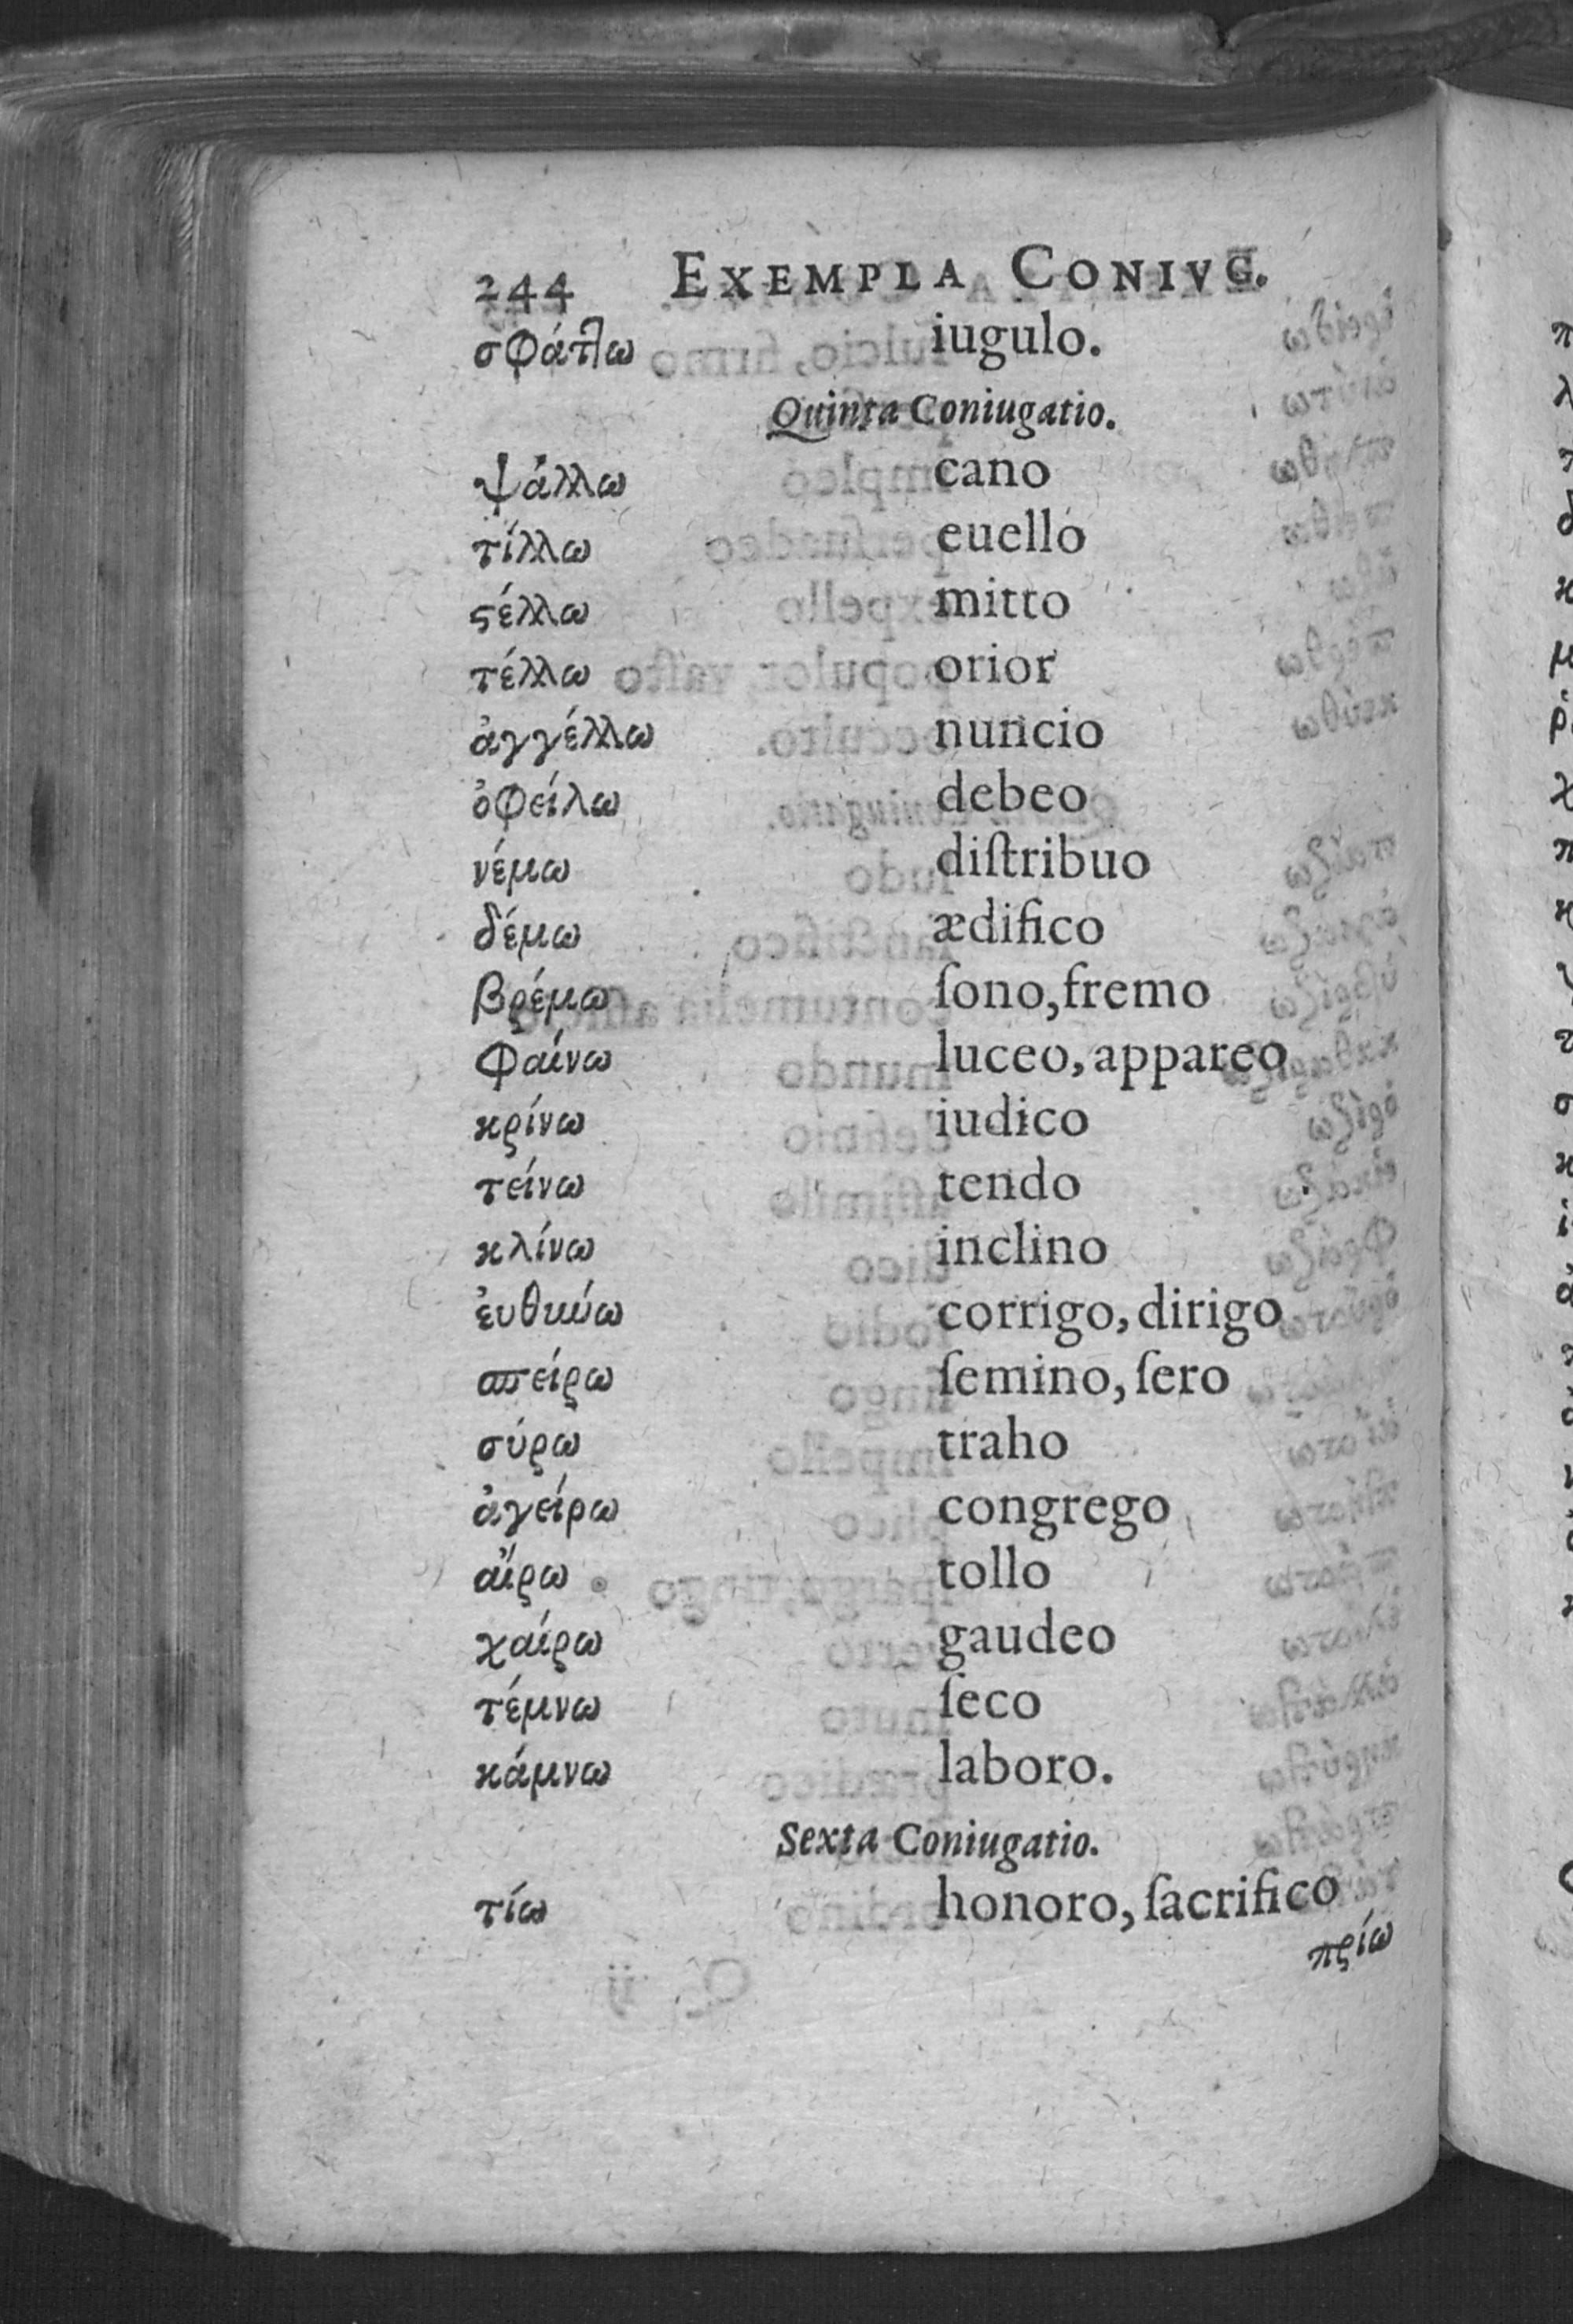 244 EXEMPLA CONIVG.
σφάτλω iugulo.
Quinta Coniugatio.
ψάλλω cano
τίλλω euello
ϛέλλω mitto
τέλλω orior
ἀγγέλλω nuncio
ὀφείλω debeo
νέμω diſtribuo
δέμω ædifico
βρέμω ſono, fremo
φαίνω luceo, appareo
κρίνω iudico
τείνω tendo
κλίνω inclino
ἐυθύνω corrigo, dirigo
σπείρω ſemino, ſero
σύρω traho
ἀγείρω congrego
αἴρω tollo
χαίρω gaudeo
τέμνω ſeco
κάμνω laboro.
Sexta Coniugatio.
τίω honoro, ſacrifico
πρίω